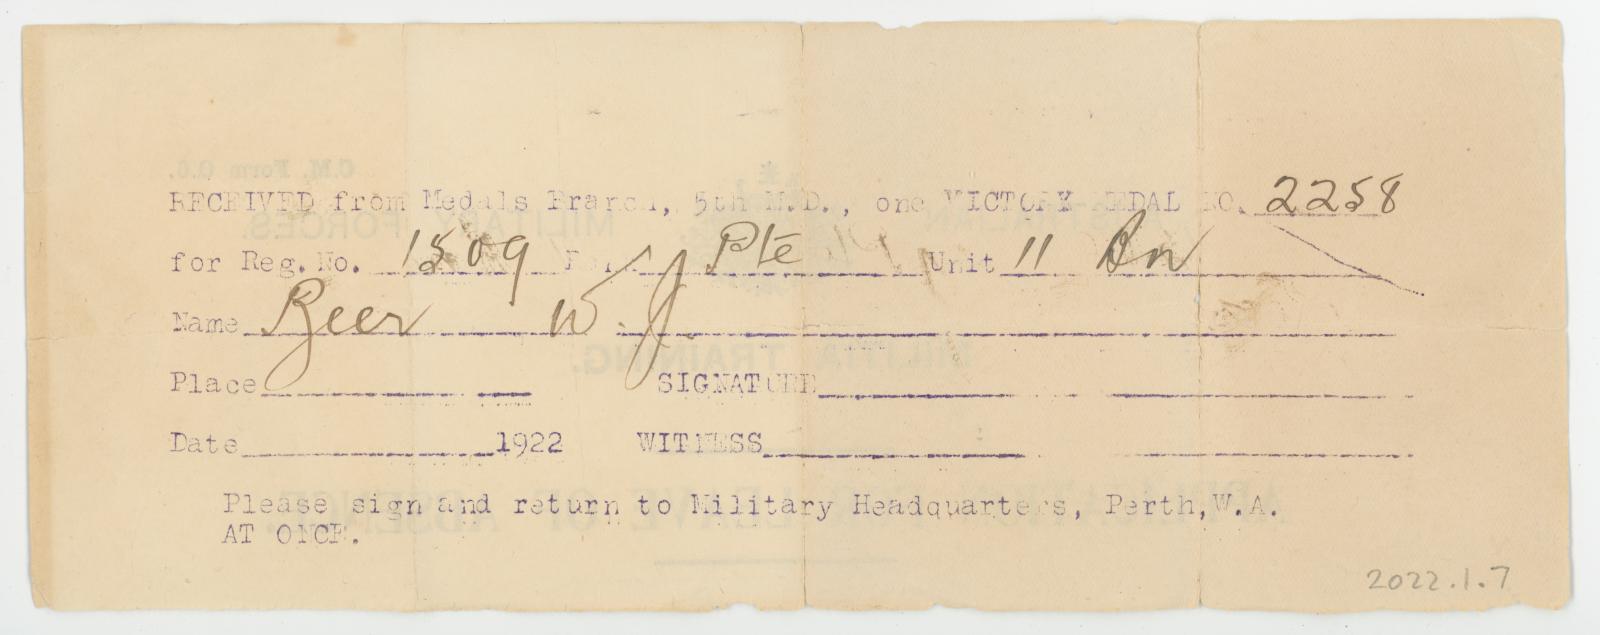 RECEIVED from Medals Branch, 5th M.D., one VICTORY MEDAL NO. 2258
for Reg. No. 1509 Rank Pte Unit 11 Bn
Name Beer W. J.
Place SIGNATURE
Date 1922 WITNESS
Please sign and return to Military Headquarters, Perth,W.A.
AT ONCE.
2022.1.7
C.M. Form O.6.
AUSTRALIAN MILITARY FORCES.
MILITIA TRAINING.
APPLICATION FOR LEAVE OF ABSENCE.